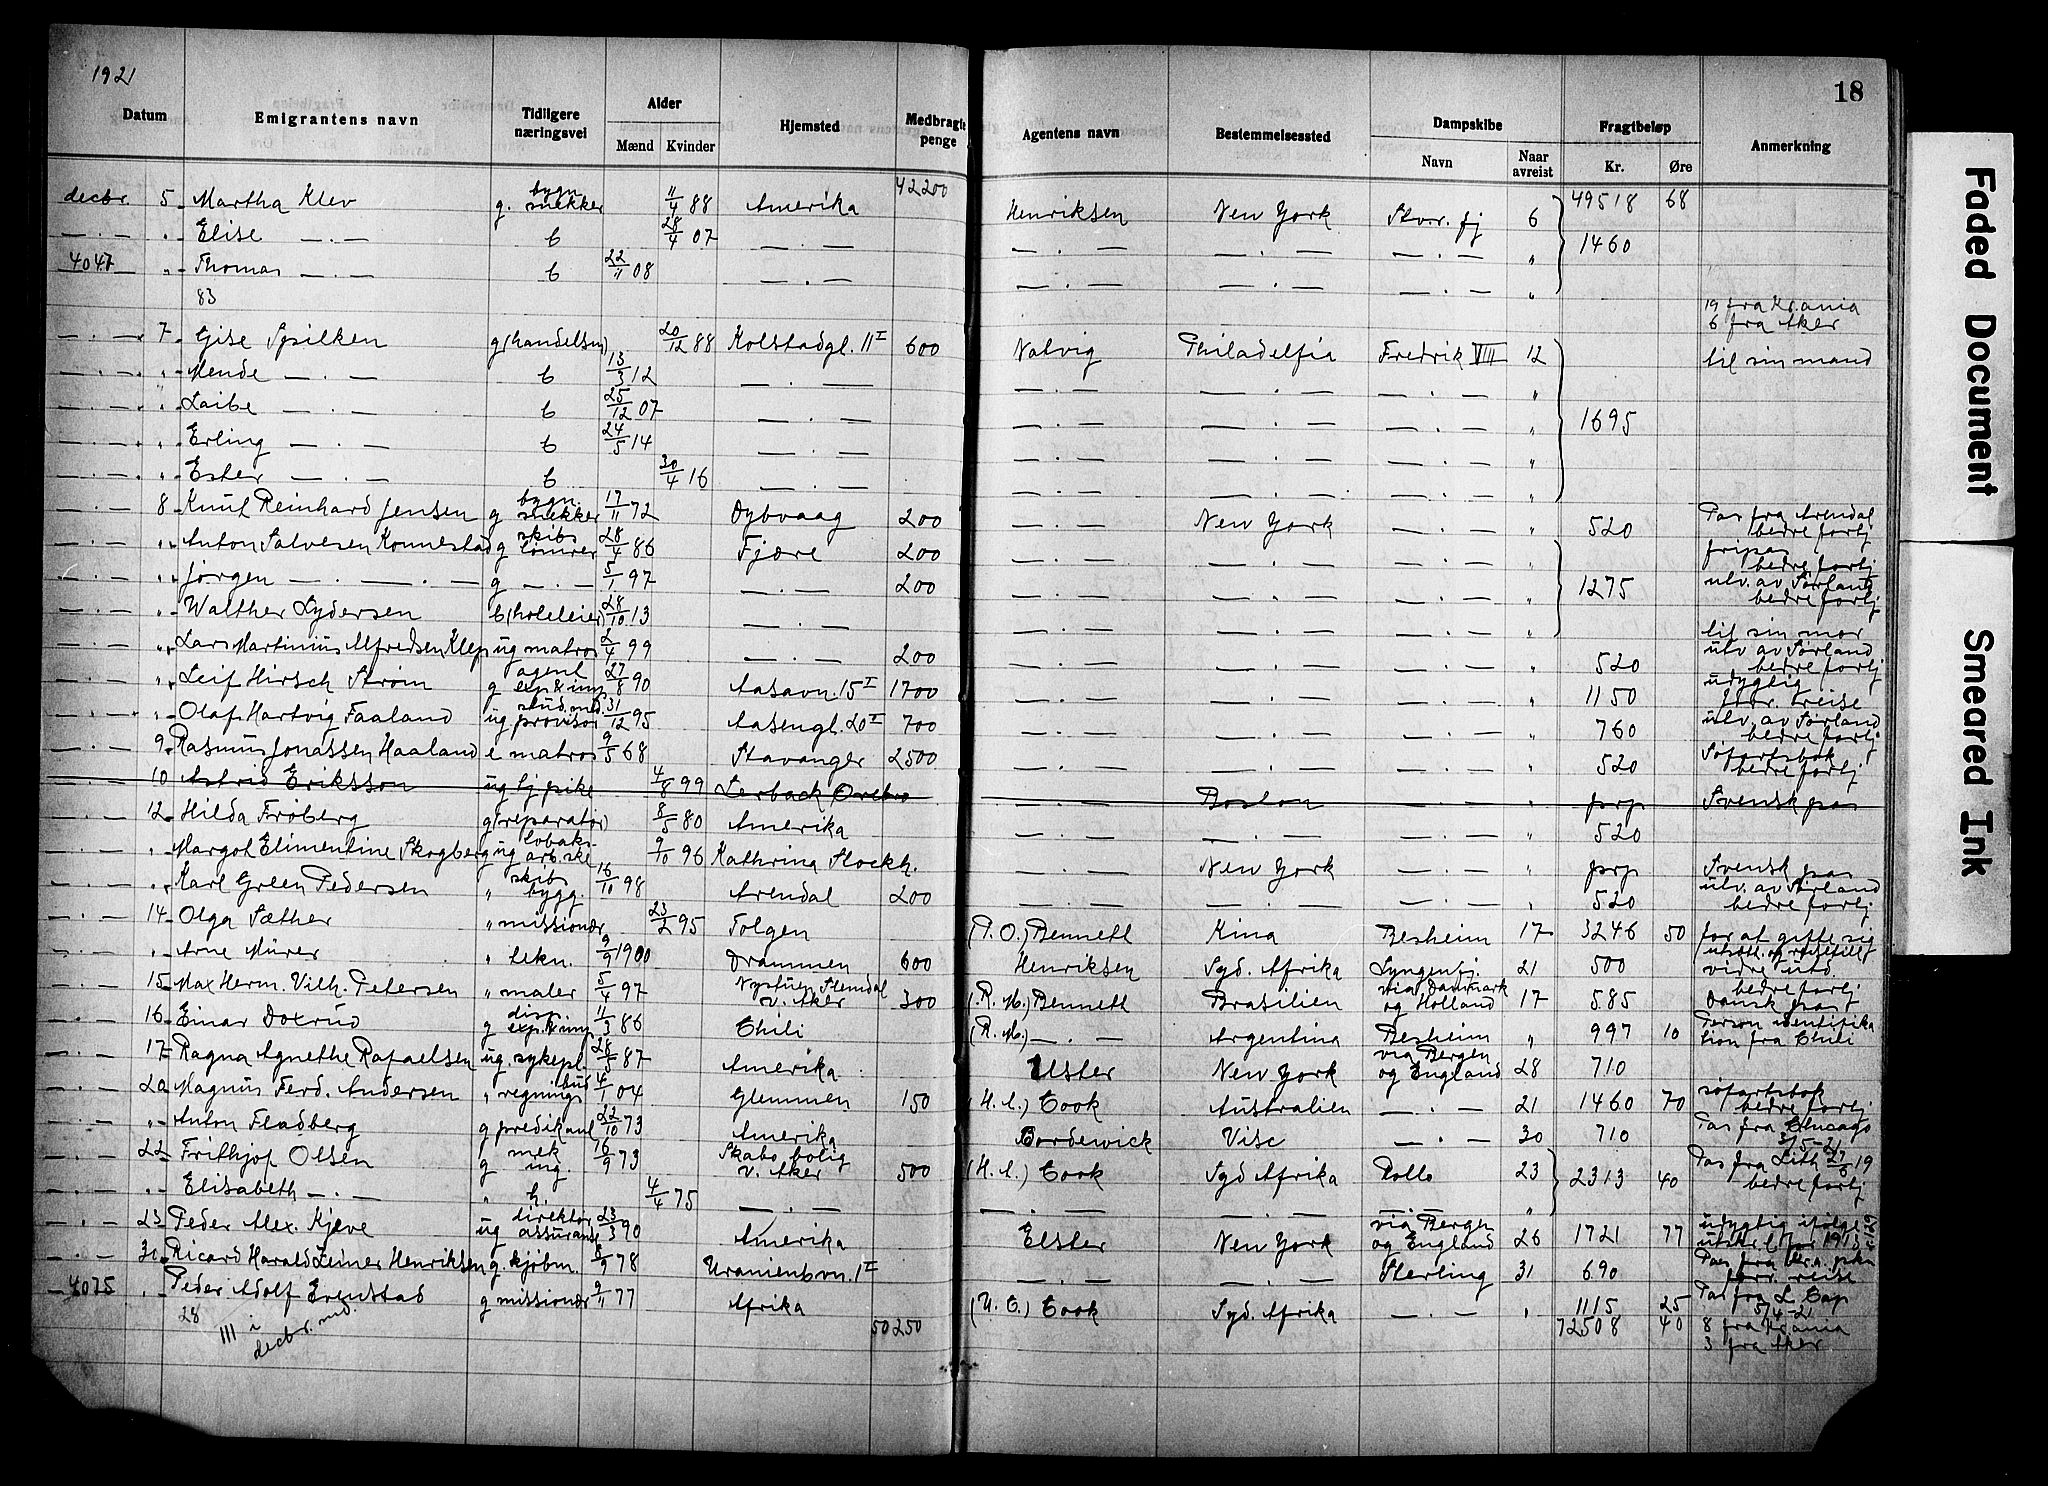 1921
18
Datum Emigrantens navn Tidligere næringsvei Alder Mænd Kvinder Hjemsted Medbragte penge Agentens navn Bestemmelsessted Dampskibe Navn Naar avreist Fragtbeløp Kr. Øre Anmerkning
42200
decbr. 5 Martha Klev g. bygn. snekker 11/4 88 Amerika Henriksen New York Stv.r. fj 6 49518 68
— . — " Elise — . — b 28/4 07 — . — — . — — . — — . — " 1460
4047 " Thomas — . — b 22/11 08 — . — — . — — . — — . — "
83
19 fra Kr.ania
6 fra Aker
— . — 7 Gise Spilken g (handelsm) 20/12 88 Kolstadgt. 11 I 600 Natvig Philadelfia Fredrik VIII 12 til sin mand
— . — " Mende — . — b 13/3 12 — . — — . — — . — — . — "
— . — " Laibe — . — b 25/12 07 — . — — . — — . — — . — " 1695
— . — " Erling — . — b 24/5 14 — . — — . — — . — — . — "
— . — " Ester — . — b 30/4 16 — . — — . — — . — "
— . — 8 Knut Reinhard Jensen g bygn. snekker 17/11 72 Dybvaag 200 — . — New York — . — " 520 Pas fra Arendal bedre fortj
— . — " Anton Salvesen Konnestad g skibs tømrer 28/4 86 Fjære 200 — . — — . — — . — " fripas bedre fortj
— . — " Jørgen — . — . — g — . — 5/1 97 — . — 200 — . — — . — — . — " 1275 utv. av Sørland bedre fortj
— . — " Walther Lydersen b (hoteleier) 28/10 13 — . — — . — — . — — . — " til sin mor
— . — " Lars Martinius Alfredsen Klep ug matros 2/4 99 — . — 200 — . — — . — — . — " 520 utv. av Sørland bedre fortj
— . — " Leif Hirsch Strøm g agent exp & imp 27/8 90 Aasavn. 15 I 1700 — . — — . — — . — " 1150 udygtig forr. reise
— . — " Olaf Hartvig Faaland ug stud. med. provisor 31/12 95 Aasengt. 20 I 700 — . — — . — — . — " 760 utv. av Sørland bedre fortj
— . — 9 Rasmus Jonassen Haaland e matros 9/5 68 Stavanger 2500 — . — — . — — . — " 520 Søfartsbok bedre fortj
— . — 10 Astrid Eriksson ug tj pike 4/8 99 Lerback Örebro — . — Boston — . — " prp Svensk pas
— . — 12 Hilda Frøberg g (reparatør) 8/5 80 Amerika — . — — . — — . — " 520
— . — " Margot Elimentine Skogberg ug tobaks arb.ske 9/10 96 Kathrina Stockh. New York — . — " prp Svensk pas
— . — " Karl Green Pedersen " skibs bygg. 16/10 98 Arendal 200 — . — — . — — . — " 520 utv. av Sørland bedre fortj
— . — 14 Olga Sæther " missionær 23/2 95 Tolgen (P. O.) Bennett Kina Besheim 17 3246 50 for at gifte sig
— . — " Arne Mürer " tekn. 9/9 1900 Drammen 600 Henriksen Syd. Afrika Lyngenfj. 21 500 vidre utd.
— . — 15 Max Herm. Vilh. Petersen " maler 5/4 97 Nystuen Slemdal v. Aker 300 (R. M.) Bennett Brasilien via Danmark og Holland 17 585 bedre fortj Dansk pas
— . — 16 Einar Doxrud g disp. exp. & imp 11/3 86 Chili (R. M.) — . — Argentina Besheim " 997 10 Person identifika tion fra Chili
— . — 17 Ragna Agnethe Rafaelsen ug. sykepl. 28/5 87 Amerika Elster New York via Bergen og England 28 710
— . — 20 Magnus Ferd. Andersen " regnings bud 4/1 04 Glemmen 150 (H. C.) Cook Australien — . — 21 1460 70 søfartsbok bedre fortj
— . — " Anton Fladberg g predikant 22/10 73 Amerika Bordewick Visc — . — 30 710 Pas fra Chicago 3/5-21
— . — 22 Frithjof Olsen g mek ing. 16/9 73 Skabo bolig v. Aker 500 (H. C.) Cook Syd Afrika Rollo 23 2313 40 Pas fra Lith 27/6 19 bedre fortj
— . — " Elisabeth — . — " h. 4/4 75 — . — — . — — . — — . — "
— . — 23 Peder Alex. Kjeve ug direktør assurance 23/3 90 Amerika Elster New York via Bergen og England 26 1721 77 udygtig ifølge
— . — 30 Ricard Harald Leiner Henriksen g. kjøbm. 8/9 78 Uranienbvn. 1 I — . — — . — Sterling 31 690 forr. reise
4075 " Peder Adolf Evenstad g missionær 9/11 77 Afrika (U. C.) Cook Syd. Afrika — . — " 1115 25 5/4-21
28 111 i decbr. md. 50250 72508 40 8 fra Kr.ania
3 fra Aker
Faded Document
Smeared Ink